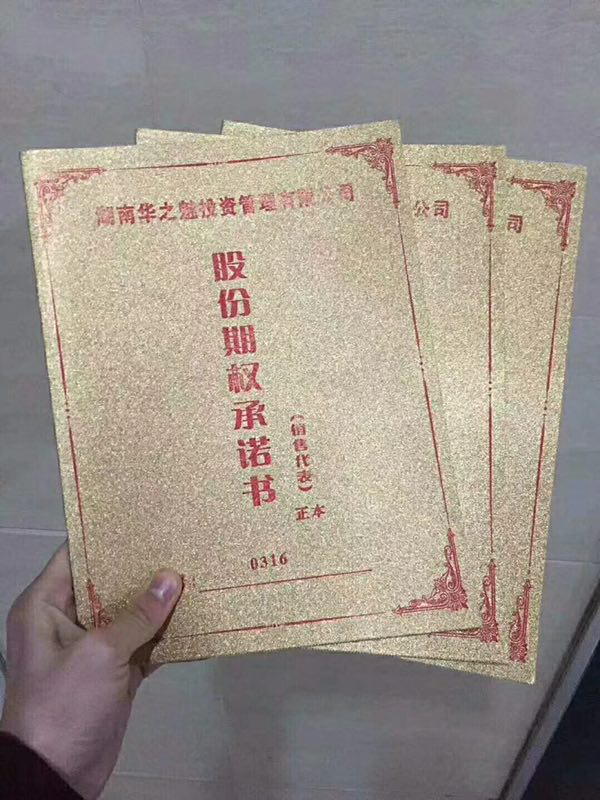 湖南华之魅投资管理有限公司
股份期权承诺书
(销售代表)
正本
0316
公司
司